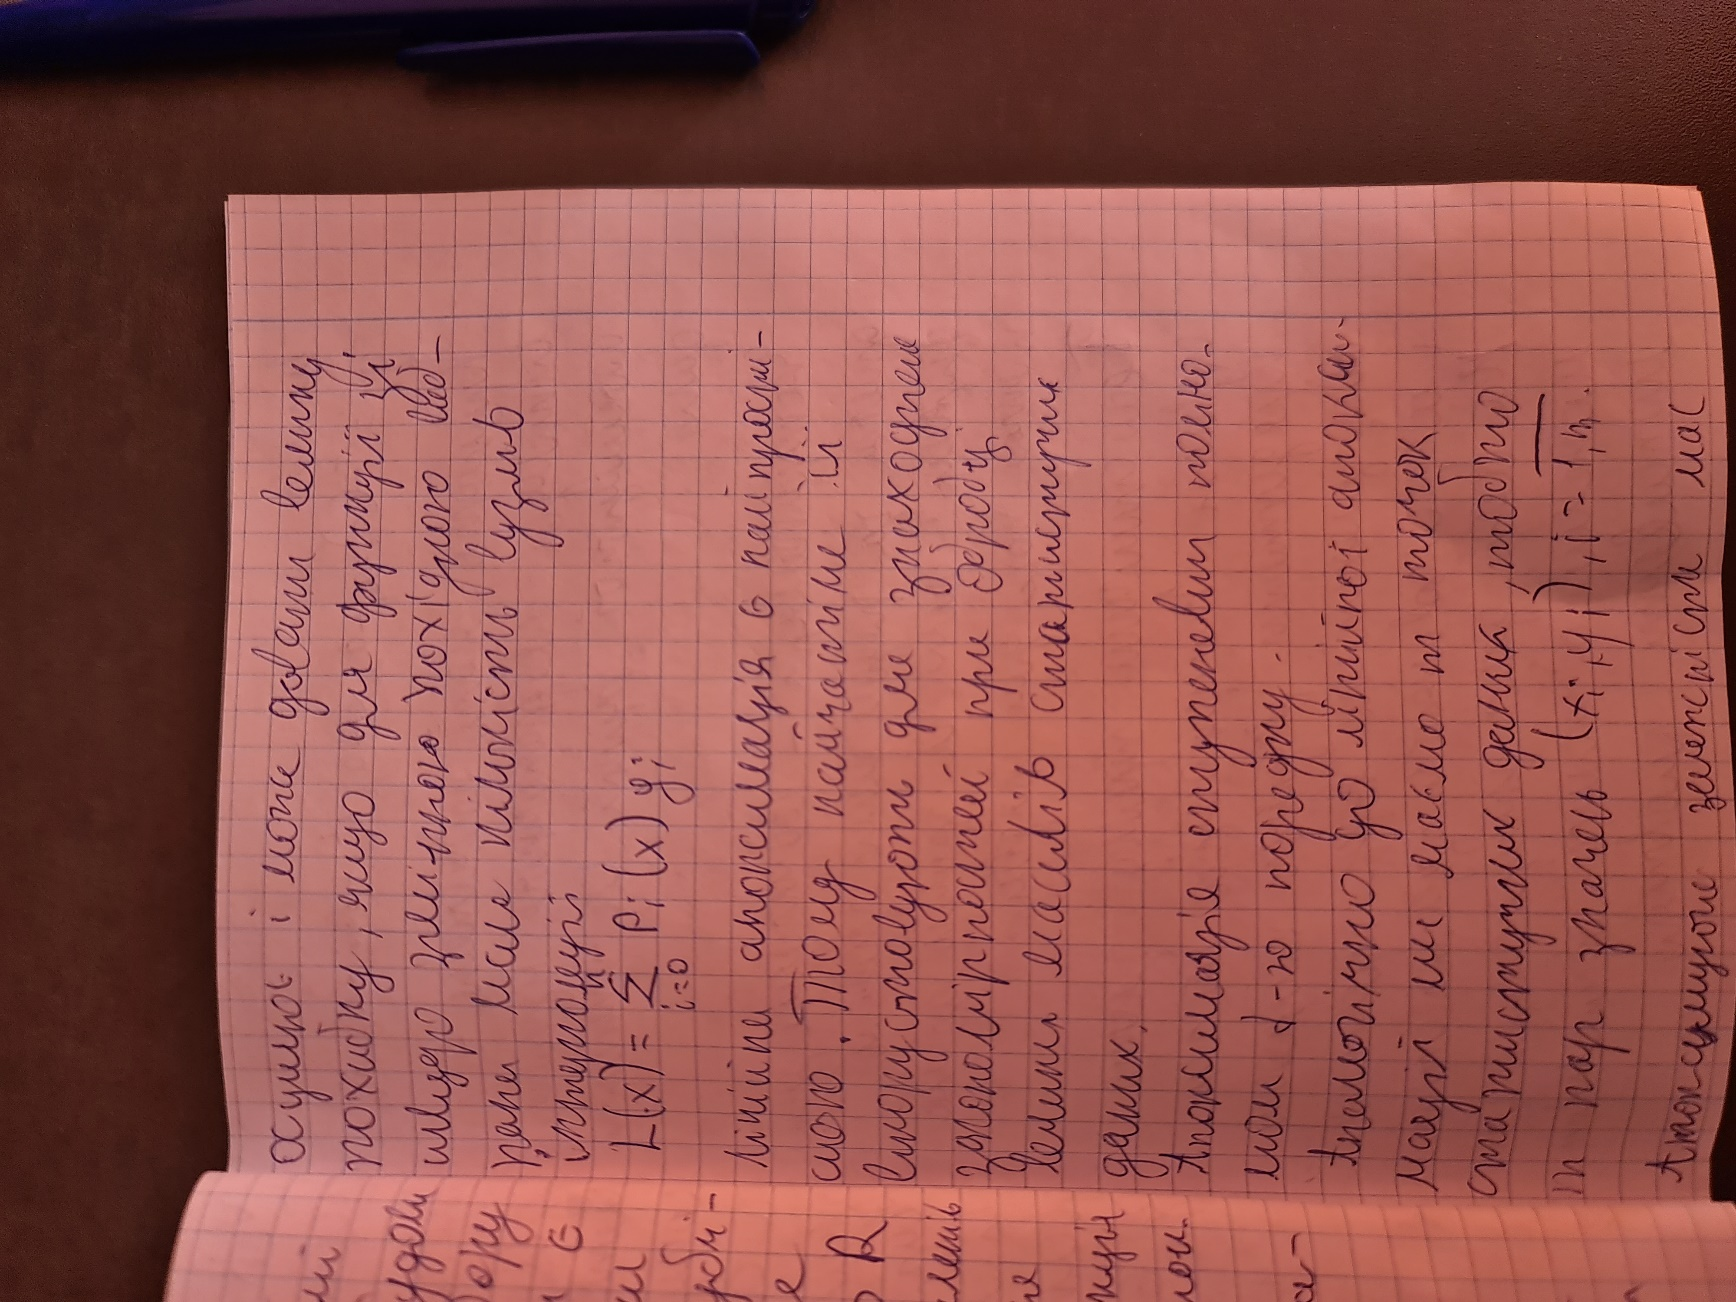 осцилює і може давати велику
похибку, якщо для функції ці
швидко змінного похідного від-
рана мала кількість вузлів
інтерполяції
L(x) = Σ Pi(x) yi
i=0
Лінійна апроксимація є найпрості-
шою. Тому найчастіше її
використовують для знаходжен
закономірностей при обробці
великих масивів статистичних
даних.
Апроксимація степеневим поліно-
мом d-го порядку.
Аналогічно до лінійної апокси-
мації ми маємо m точок
статистичних даних, тобто
m пар значень (xi, yi), i = 1,m.
Апоксимуюче залежність має
ий
удом
бору
є
ми
робі-
е
R
лень
я
кції
мои
а-